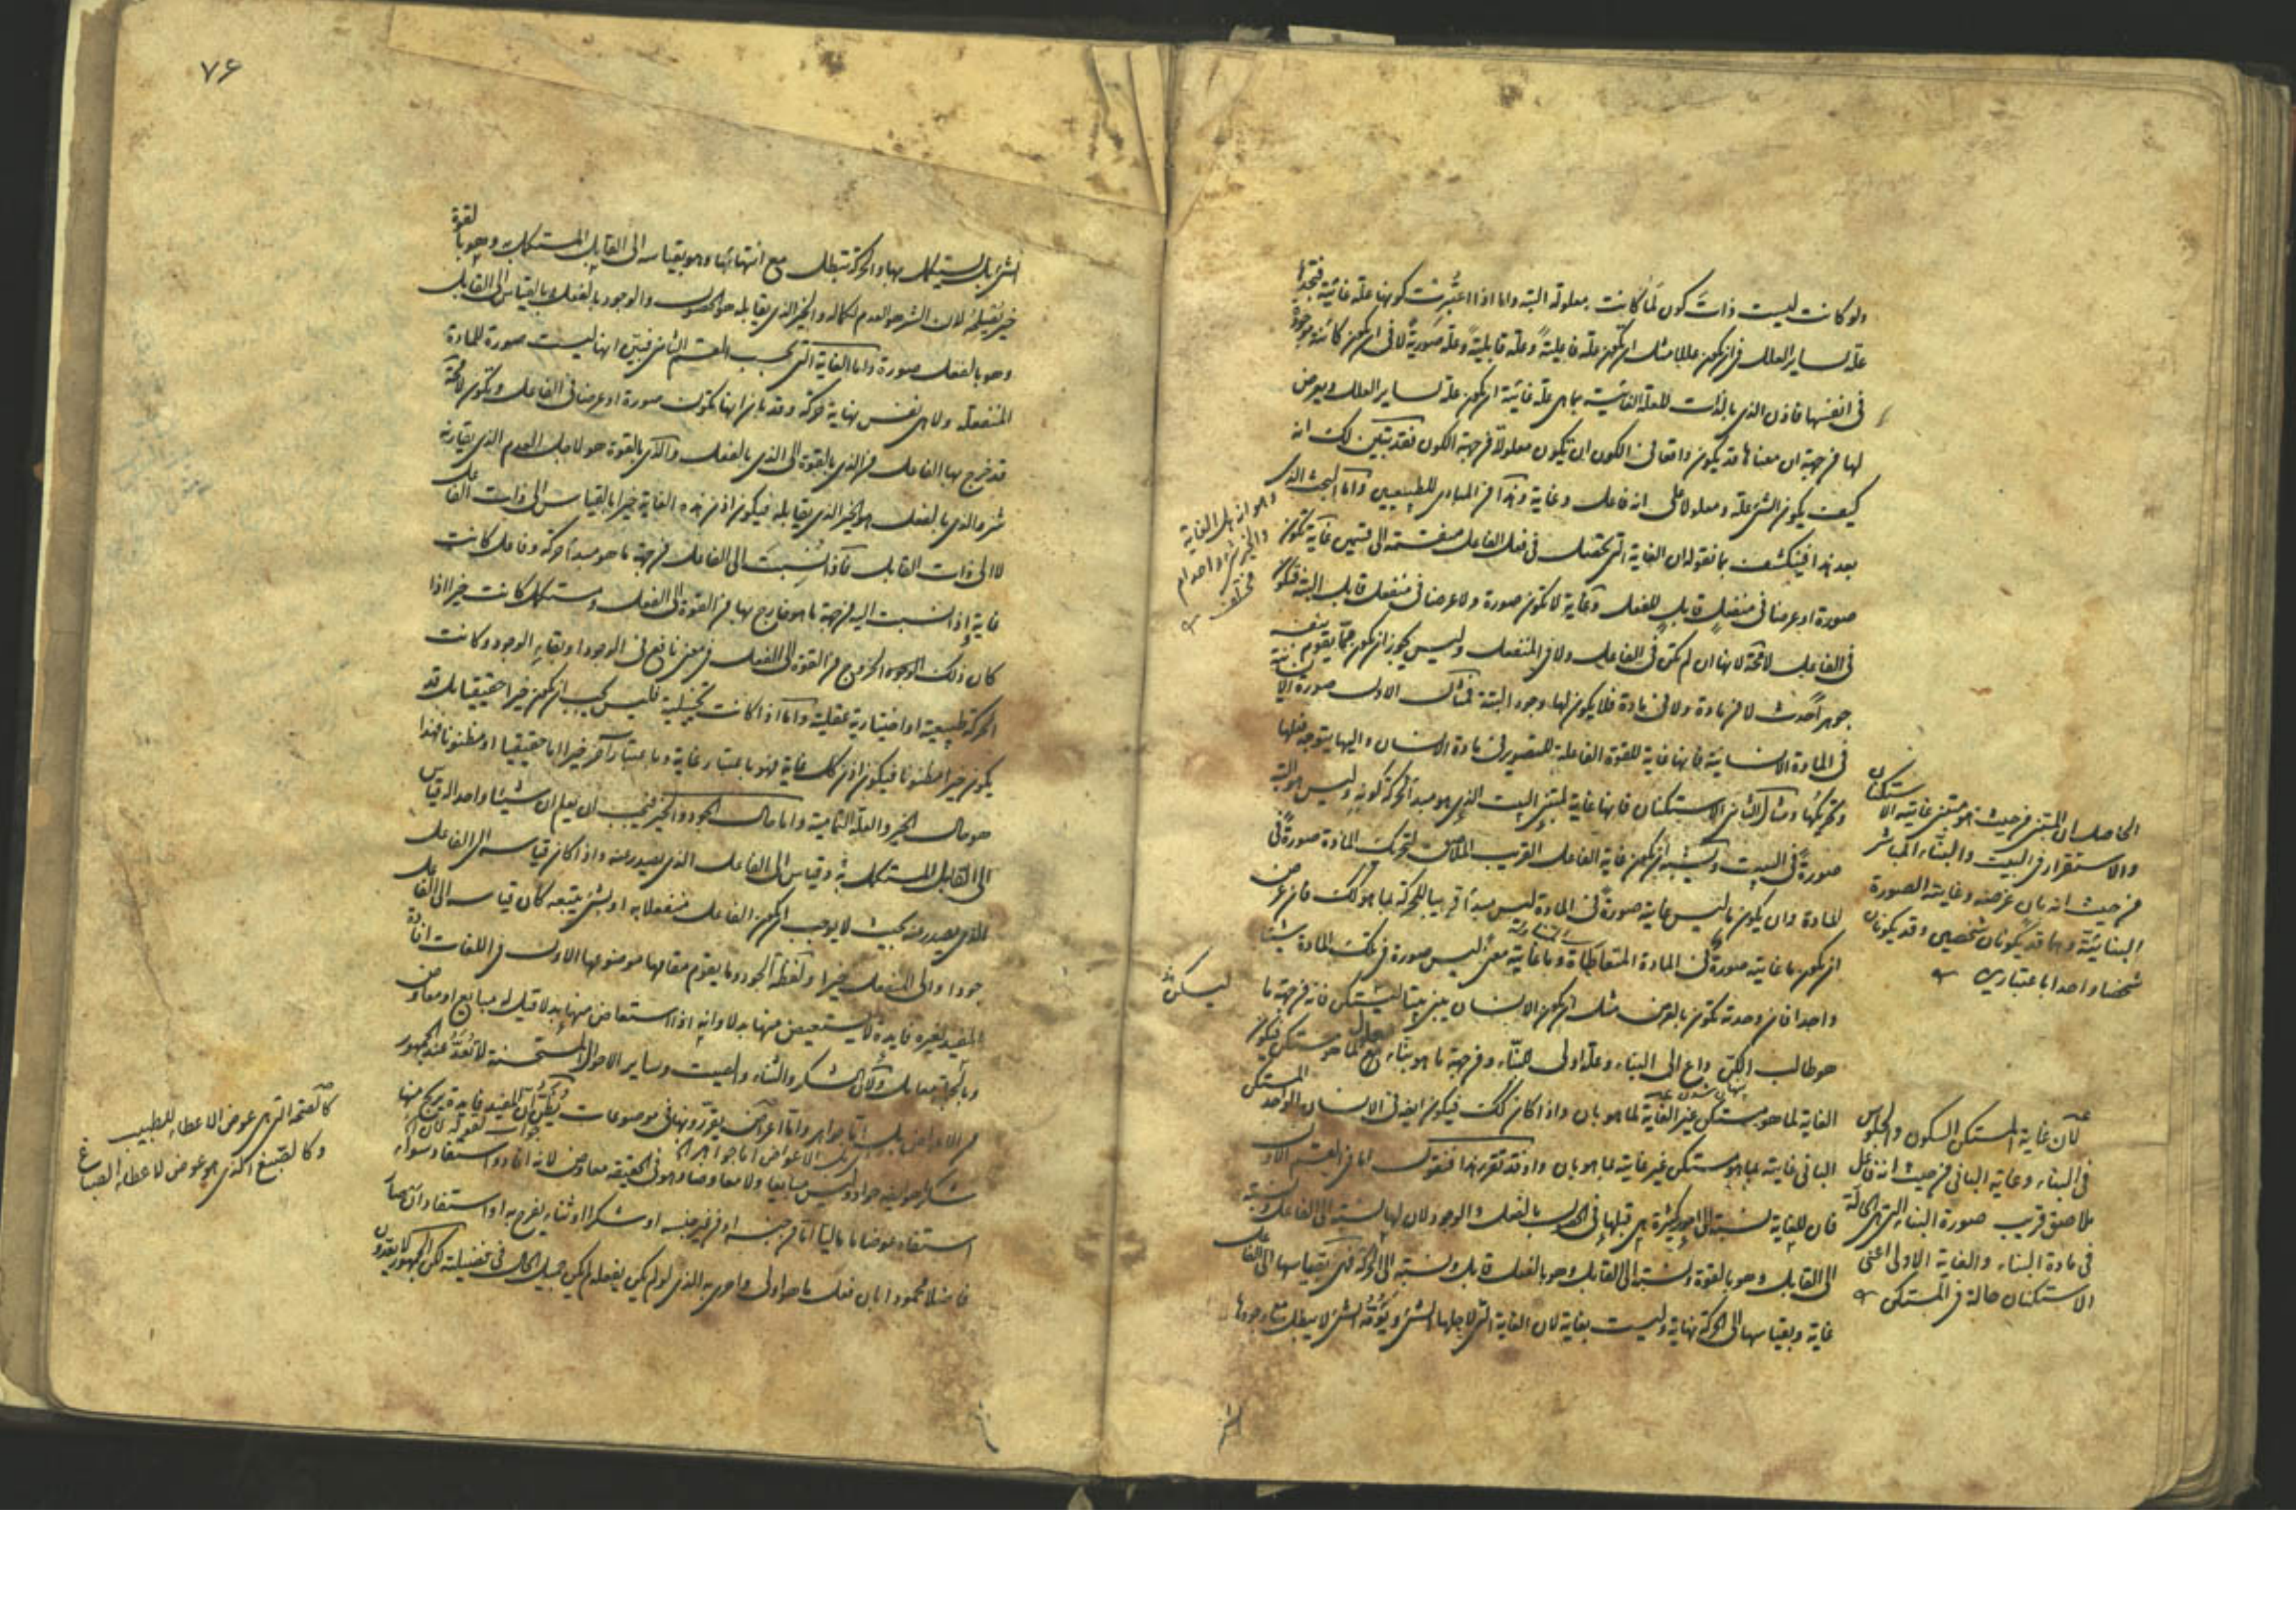 ولو كانت ليست ذات كون لما كانت معلولة البتة واما اذا اعتبرت كونها علة غائية فتجدها
علة لساير العلل في ان يكون عللا مثل ان يكون علة فاعلية وعلة قابلية وعلة صورية لا في ان يكون كائنة موجودة
في انفسها فاذن الذي بالذات للعلة الغائية بما هي علة غائية ان يكون علة لساير العلل ويعرض
لها من جهة ان معناها قد يكون واقعا في الكون ان يكون معلولا من جهة الكون فقد تبين لك انه
كيف يكون الشئ علة ومعلولا على انه فاعل وغاية وهذا من المبادى للطبيعيين واما البحث الذي
بعد هذا فينكشف بما نقوله ان الغاية التي تحصل في فعل الفاعل منقسمة الى قسمين غاية تكون
صورة او عرضا في منفعل قابل للفعل وغاية لا تكون صورة ولا عرضا في منفعل قابل البتة فتكون
في الفاعل لا محة لانها ان لم تكن في الفاعل ولا في المنفعل وليس يجوز ان يكون مما يقوم بنفسه
جوهرا حدث لا من مادة ولا في مادة فلا يكون لها وجود البتة فمثال الاول صورة الانسانية
في المادة الانسانية فانها غاية للقوة الفاعلة للتصوير في مادة الانسان واليها يتوجه فعلها
وتحريكها ومثال الثاني الاستكنان فانها غاية لمبتنى البيت الذي هو مبدأ لحركة كونه وليس هو البتة
صورة في البيت ويشبه ان يكون غاية الفاعل القريب الملاصق لتحريك المادة صورة في
المادة وان يكون ما ليس غايته صورة في المادة ليس مبدأ قريبا للحركة بما هو كذلك فان عرض
ان يكون ما غايته صورة في المادة المتعاطاة وما غايته معنى ليس صورة في تلك المادة شيئا
واحدا فان وحدته تكون بالعرض مثل ان يكون الانسان يبنى بيتا ليستكن فانه من جهة ما
هو طالب الكن داع الى البناء وعلة اولى للبناء ومن جهة ما هو بناء معلول لما هو مستكن فيكون
الغاية لما هو مستكن غير الغاية لما هو بان واذا كان كذلك فيكون ايضا في الانسان الواحد المستكن
الباني غايته بما هو مستكن غير غايته بما هو بان واذ قد تقرر هذا فنقول اما في القسم الاول
فان للغاية نسبة الى امور كثيرة هي قبلها في الحصول بالفعل والوجود لان لها نسبة الى الفاعل ونسبة
الى القابل وهو بالقوة ونسبة الى القابل وهو بالفعل قابل ونسبة الى الحركة فهي بقياسها الى الفاعل
غاية وبقياسها الى الحركة نهاية وليست بغاية لان الغاية التي لاجلها الشئ ويؤمه الشئ لا يبطل مع وجودها
وهو انه هل الغاية
والخير شئ واحد ام
مختلف
الحاصل ان المبتنى من حيث هو مبتنى غايته الاستكنان
والاستقرار في البيت والبناء المباشر
من حيث انه بان غرضه وغايته الصورة
البنائية وهما قد يكونان شخصين وقد يكونان
شخصا واحدا باعتبارين
ليسكن
لان غاية المستكن السكون والجلوس
في البناء وغاية البانى من حيث انه فاعل
ملاصق قريب صورة البناء التي هى الحالة
في مادة البناء والغاية الاولى اعنى
الاستكنان حالة في المستكن
٧۶
الشئ بل يستكمل بها والحركة تبطل مع انتهائها وهو بقياسه الى القابل المستكمل به وهو بالقوة
خير يصلحه لان الشر هو العدم لكماله والخير الذي يقابله هو الحصول والوجود بالفعل وبالقياس الى القابل
وهو بالفعل صورة واما الغاية التي بحسب القسم الثاني فبين انها ليست صورة للمادة
المنفعلة ولا هي نفس نهاية حركة وقد بان انها تكون صورة او عرضا في الفاعل ويكون لا محة
قد خرج بها الفاعل من الذي بالقوة الى الذي بالفعل والذي بالقوة هو لاجل العدم الذي يقارنه
شر والذي بالفعل هو الخير الذي يقابله فيكون اذن هذه الغاية خيرا بالقياس الى ذات الفاعل
لا الى ذات القابل فاذا نسبت الى الفاعل من جهة ما هو مبدأ حركة وفاعل كانت
غاية واذا نسبت اليه من جهة ما هو خارج بها من القوة الى الفعل ومستكمل كانت خيرا اذا
كان ذلك الوجه الخروج من القوة الى الفعل في معنى نافع في الوجود او بقاء الوجود وكانت
الحركة طبيعية او اختيارية عقلية واما اذا كانت تخيلية فليس يجب ان يكون خيرا حقيقيا بل قد
يكون خيرا مظنونا فيكون اذن كل غاية فهو باعتبار غاية وباعتبار آخر خيرا اما حقيقيا او مظنونا فهذا
هو حال الخير والعلة التمامية واما حال الجود والخير فيجب ان يعلم ان شيئا واحدا له قياس
الى القابل المستكمل به وقياس الى الفاعل الذي يصدر عنه واذا كان قياسه الى الفاعل
الذي يصدر عنه بحيث لا يوجب ان يكون الفاعل منفعلا به او بشئ يتبعه كان قياسه الى الفاعل
جودا والى المنفعل خيرا ولفظة الجود وما يقوم مقامها موضوعها الاول في اللغات افادة
المفيد لغيره فايدة لا يستعيض منها بدلا وانه اذا استعاض منها بدلا قيل له مبايع او معاوض
وبالجملة معامل ولان الشكر والثناء والصيت وساير الاحوال المستحسنة لا تعد عند الجمهور
من الاعواض بل اما جواهر واما اعراض يقررونها في موضوعات يظن ان المفيد فايدة يربح منها
شكرا هو ايضا جواد وليس مبايعا ولا معاوضا وهو في الحقيقة معاوض لانه افاد واستفاد سواء
استفاد عوضا ما ماليا اما من جنسه او من غير جنسه او شكرا او ثناء يفرح به او استفاد ان صار
فاضلا محمودا بان فعل ما هو اولى واحرى به الذي لو لم يكن يفعله لم يكن جميل الحال في فضيلته لكن الجمهور لا يعدون
كالصحة التي هى عوض الاعطاء للطبيب
وكالصبغ الذي هو عوض لاعطاء الصباغ